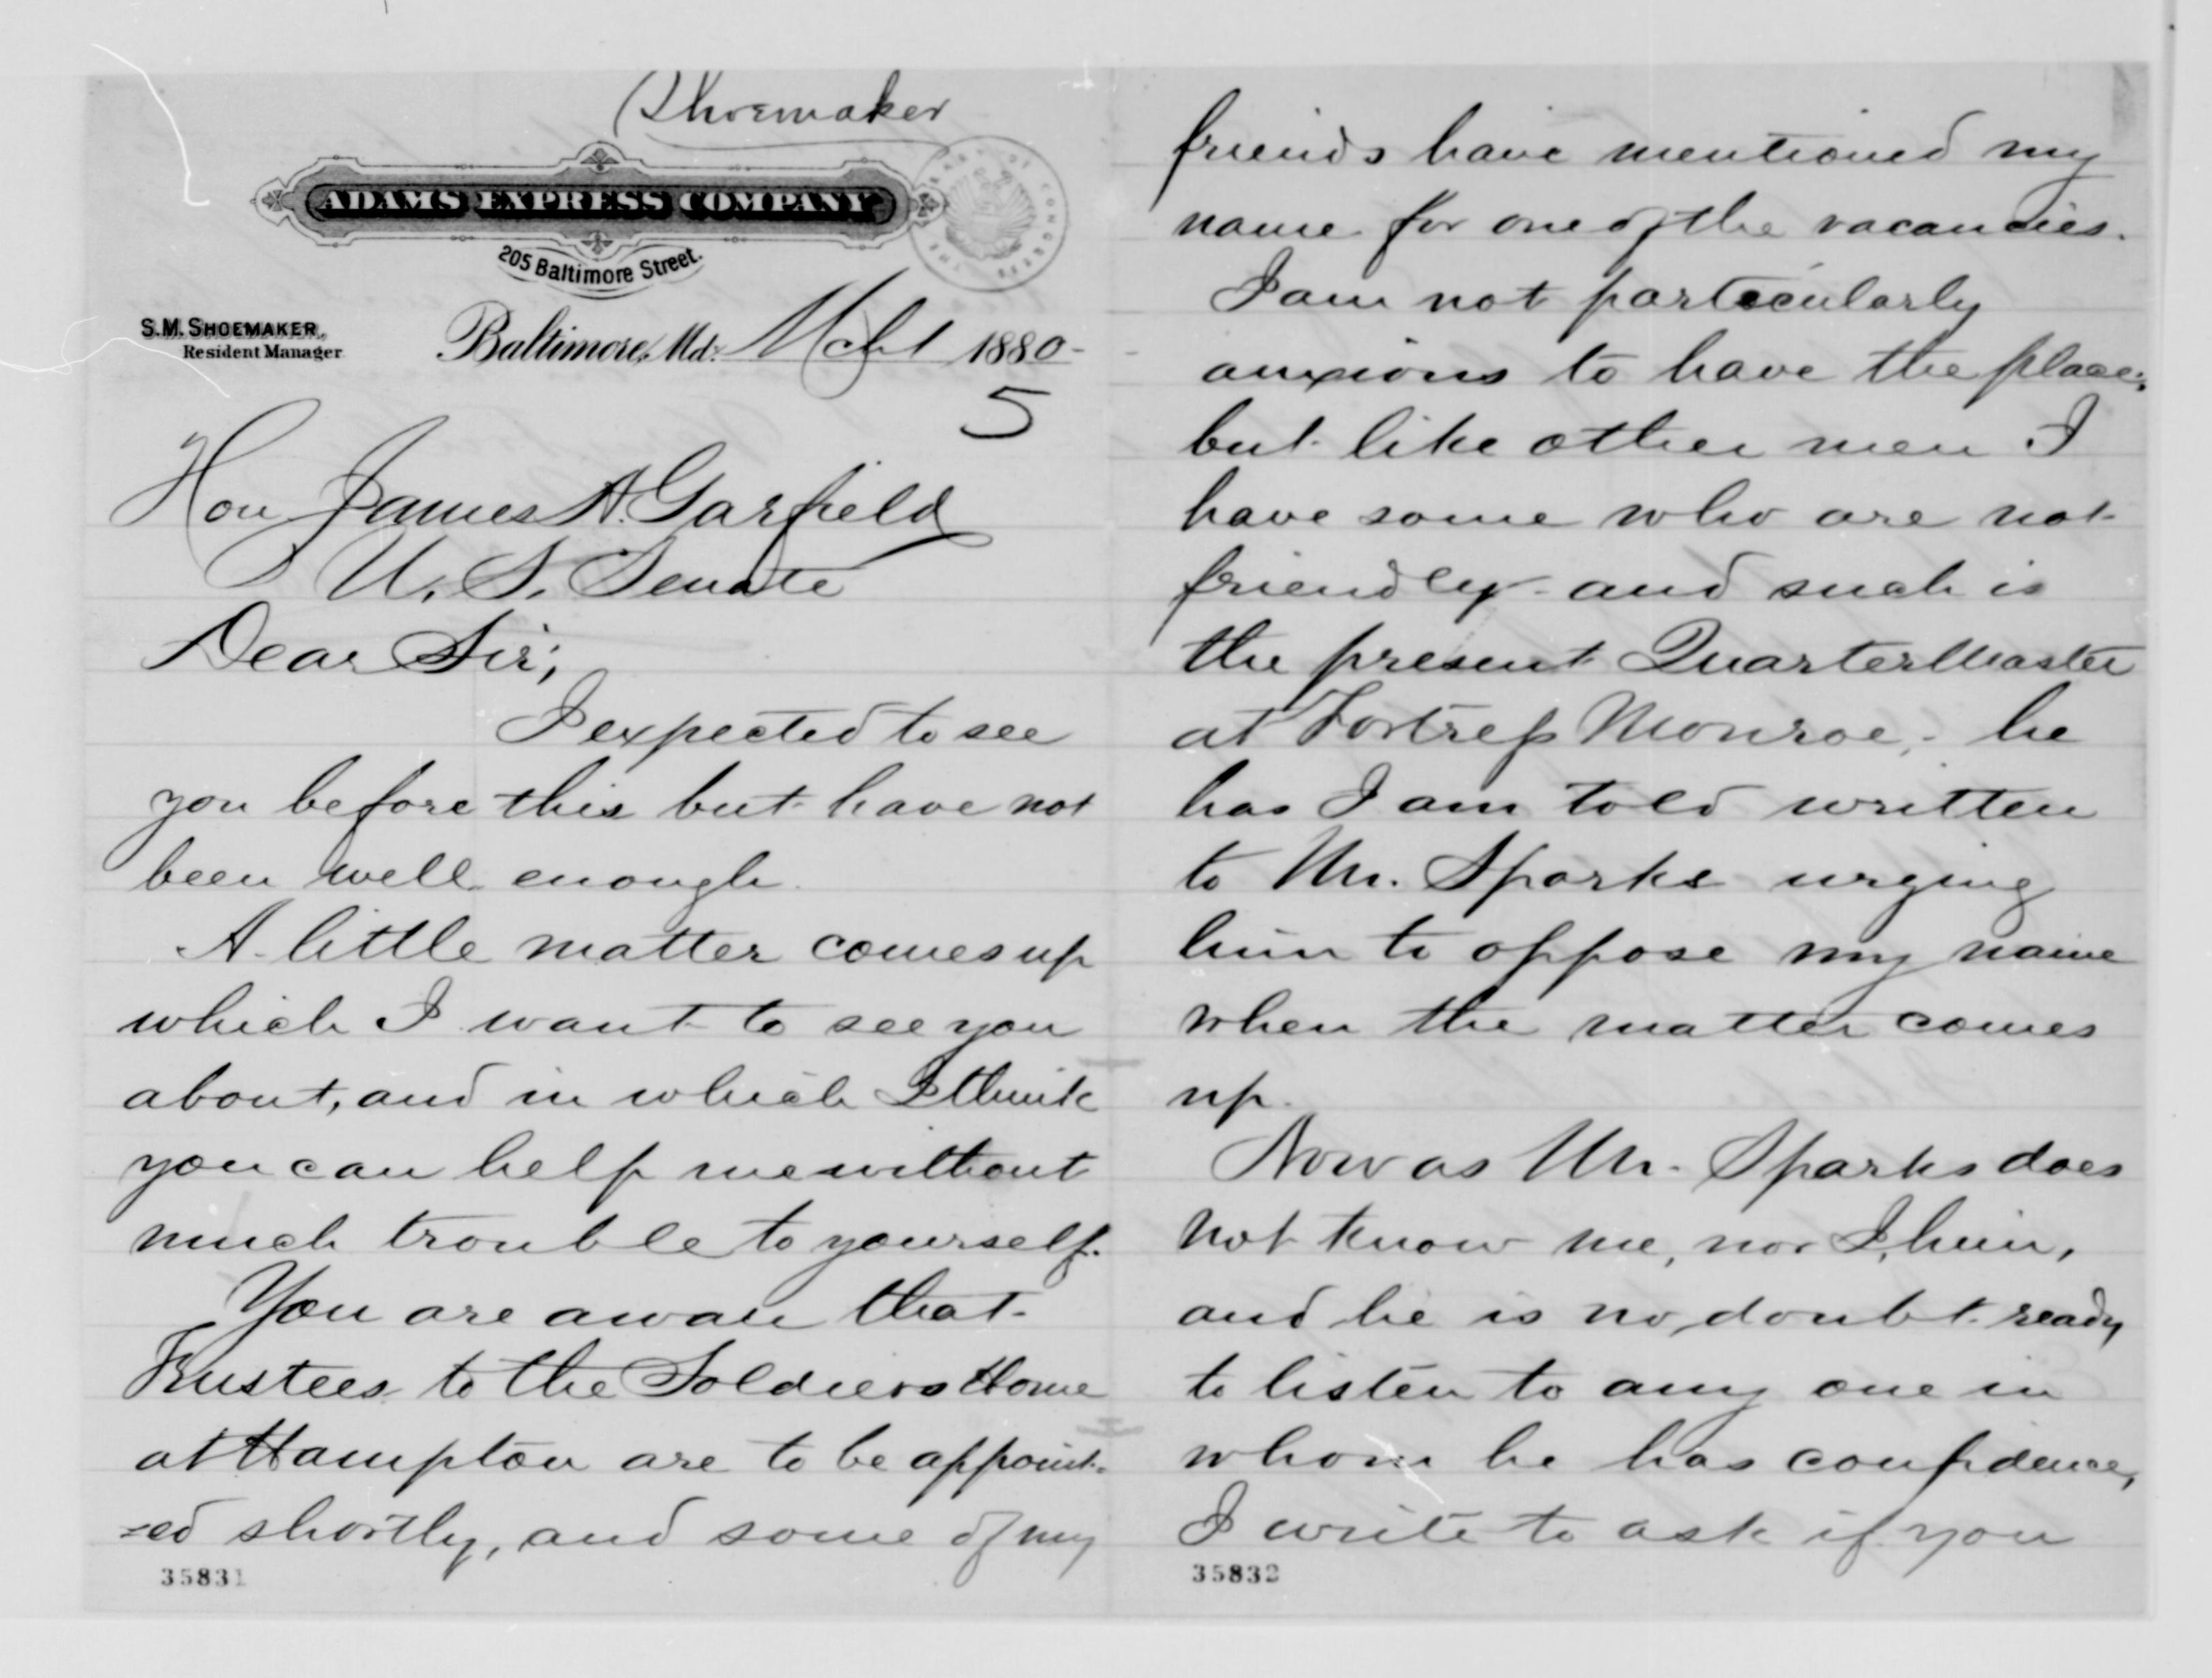 Shoemaker
ADAMS EXPRESS COMPANY
205 Baltimore Street.
S.M. SHOEMAKER,
Resident Manager
Baltimore, Md. Mch 1 1880-
5
Hon James A. Garfield
U. S. Senate
Dear Sir;
I expected to see
you before this but have not
been well enough.
A little matter comes up
which I want to see you
about, and in which I think
you can help me without
much trouble to yourself.
You are aware that
Trustees to the Soldiers Home
at Hampton are to be appoint-
=ed shortly, and some of my
35831
friends have mentioned my
name for one of the vacancies.
I am not particularly
anxious to have the place,
but like other men I
have some who are not
friendly and such is
the present QuarterMaster
at Fortress Monroe; he
has I am told written
to Mr. Sparks urging
him to oppose my name
when the matter comes
up.
Now as Mr. Sparks does
not know me, nor I, him,
and he is no doubt ready
to listen to any one in
whom he has confidence,
I write to ask if you
35832